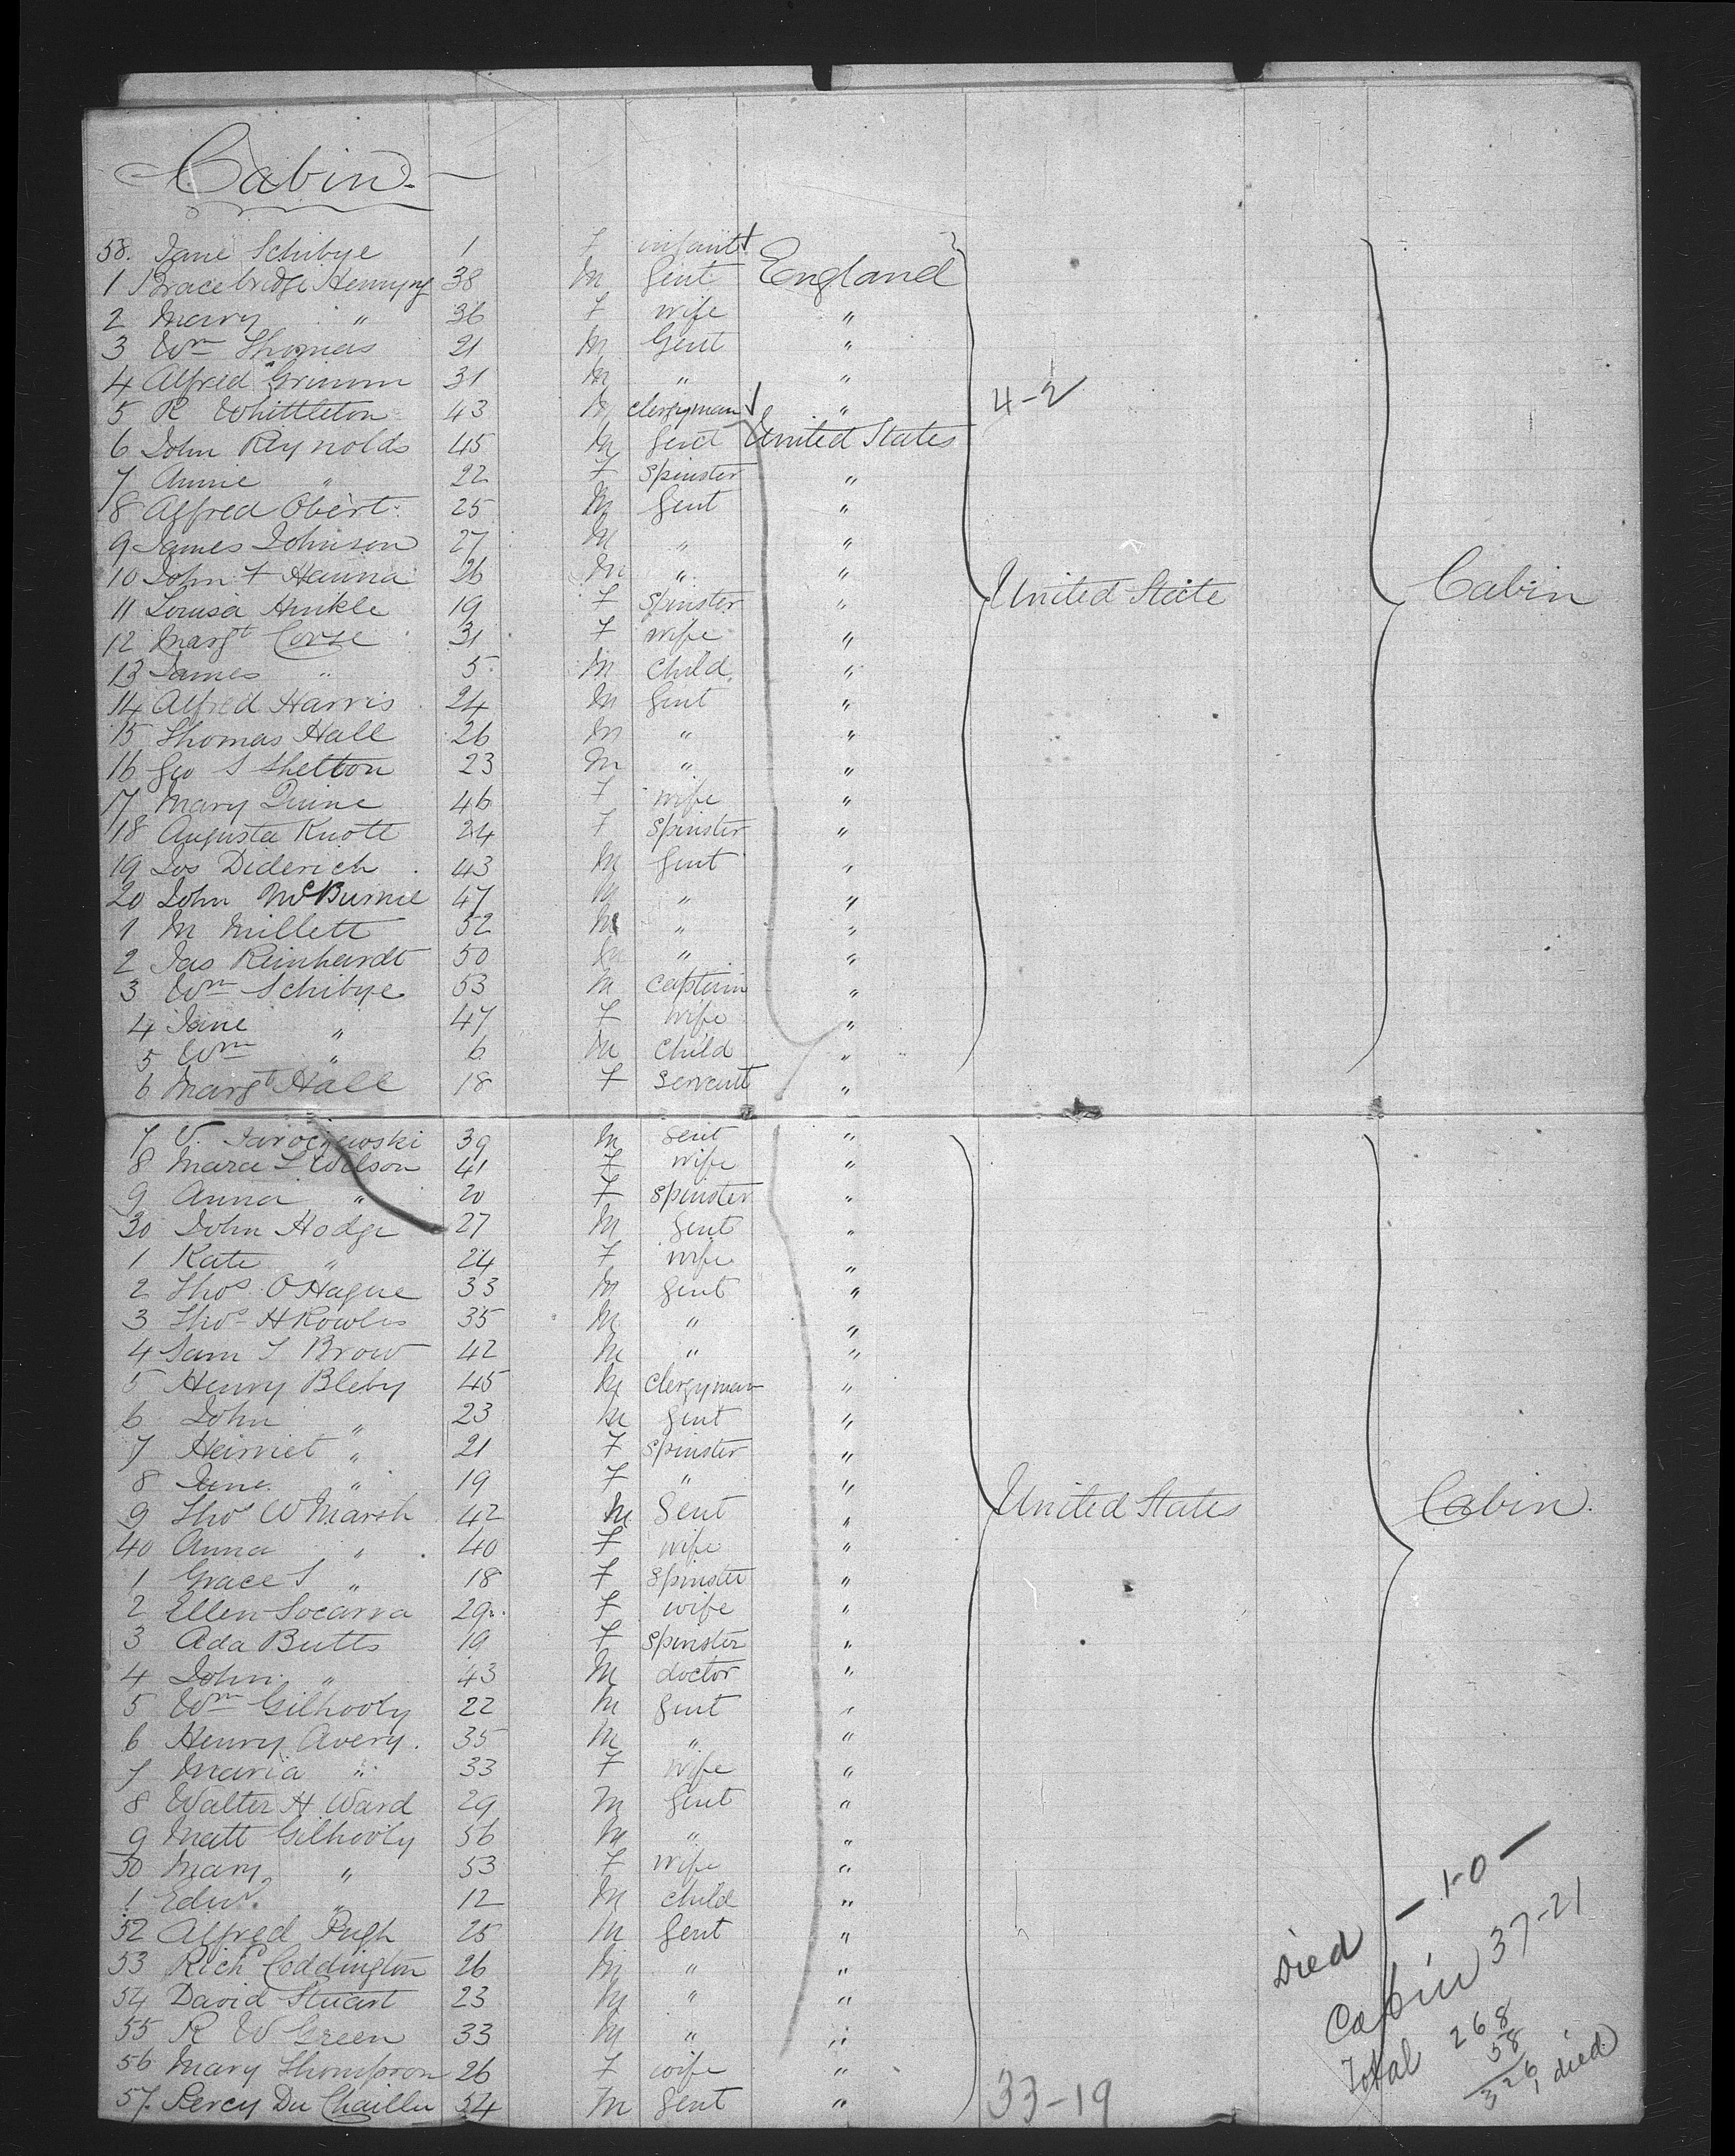 Cabin.
58. Jane Schibye 1 F infant
1 Bracebridge Hemyng 38 M Gent England
2 Mary " 36 F wife "
3 Wm Thomas 21 M Gent "
4 Alfred Grimm 31 M " "
5 R Whittleton 43 M clergyman " 4-2
6 John Reynolds 45 M Gent United States
7 Annie " 22 F spinster "
8 Alfred Obert 25 M Gent "
9 James Johnson 27 M " "
10 John F Hanna 26 M " " United State Cabin
11 Louisa Hinkle 19 F spinster "
12 Margt Corse 31 F wife "
13 James " 5 M child "
14 Alfred Harris 24 M Gent "
15 Thomas Hall 26 M " "
16 Geo S Shelton 23 M " "
17 Mary Quine 46 F wife "
18 Augusta Knott 24 F spinster "
19 Jos Diderich 43 M Gent "
20 John McBurnie 47 M " "
1 M Millett 52 M " "
2 Jas Reinhardt 50 M " "
3 Wm Schibye 53 M captain "
4 Jane " 47 F wife "
5 Wm " 6 M child "
6 Margt Hall 18 F servant "
7 V. 39 M Gent "
8 L Wilson 41 F wife "
9 Anna " 20 F spinster "
30 John Hodge 27 M Gent "
1 Kate " 24 F wife "
2 Thos O Hague 33 M Gent "
3 Thos H Rowles 35 M " "
4 Sam S Brow 42 M " "
5 Henry Bleby 45 M clergyman "
6 John " 23 M Gent "
7 Harriet " 21 F spinster "
8 June " 19 F " "
9 Thos W Marsh 42 M Gent " United States Cabin.
40 Anna " 40 F wife "
1 Grace S " 18 F spinster "
2 Ellen Socarra 29 F wife "
3 Ada Butts 19 F spinster "
4 John " 43 M doctor "
5 Wm Gilhooly 22 M Gent "
6 Henry Avery. 35 M " "
7 Maria " 33 F wife "
8 Walter H Ward 29 M Gent "
9 Matt Gilhooly 56 M " "
50 Mary " 53 F wife "
1 Edw. " 12 M child "
52 Alfred Pugh 25 M Gent "
53 Richd Coddington 26 M " "
54 David Stuart 23 M " "
55 R W Green 33 M " "
56 Mary Thompson 26 F wife "
57. Percy Du Chaillu 54 M Gent " 33-19
Died - 1-0 -
Cabin 37-21
Total 268
58
326
1 died